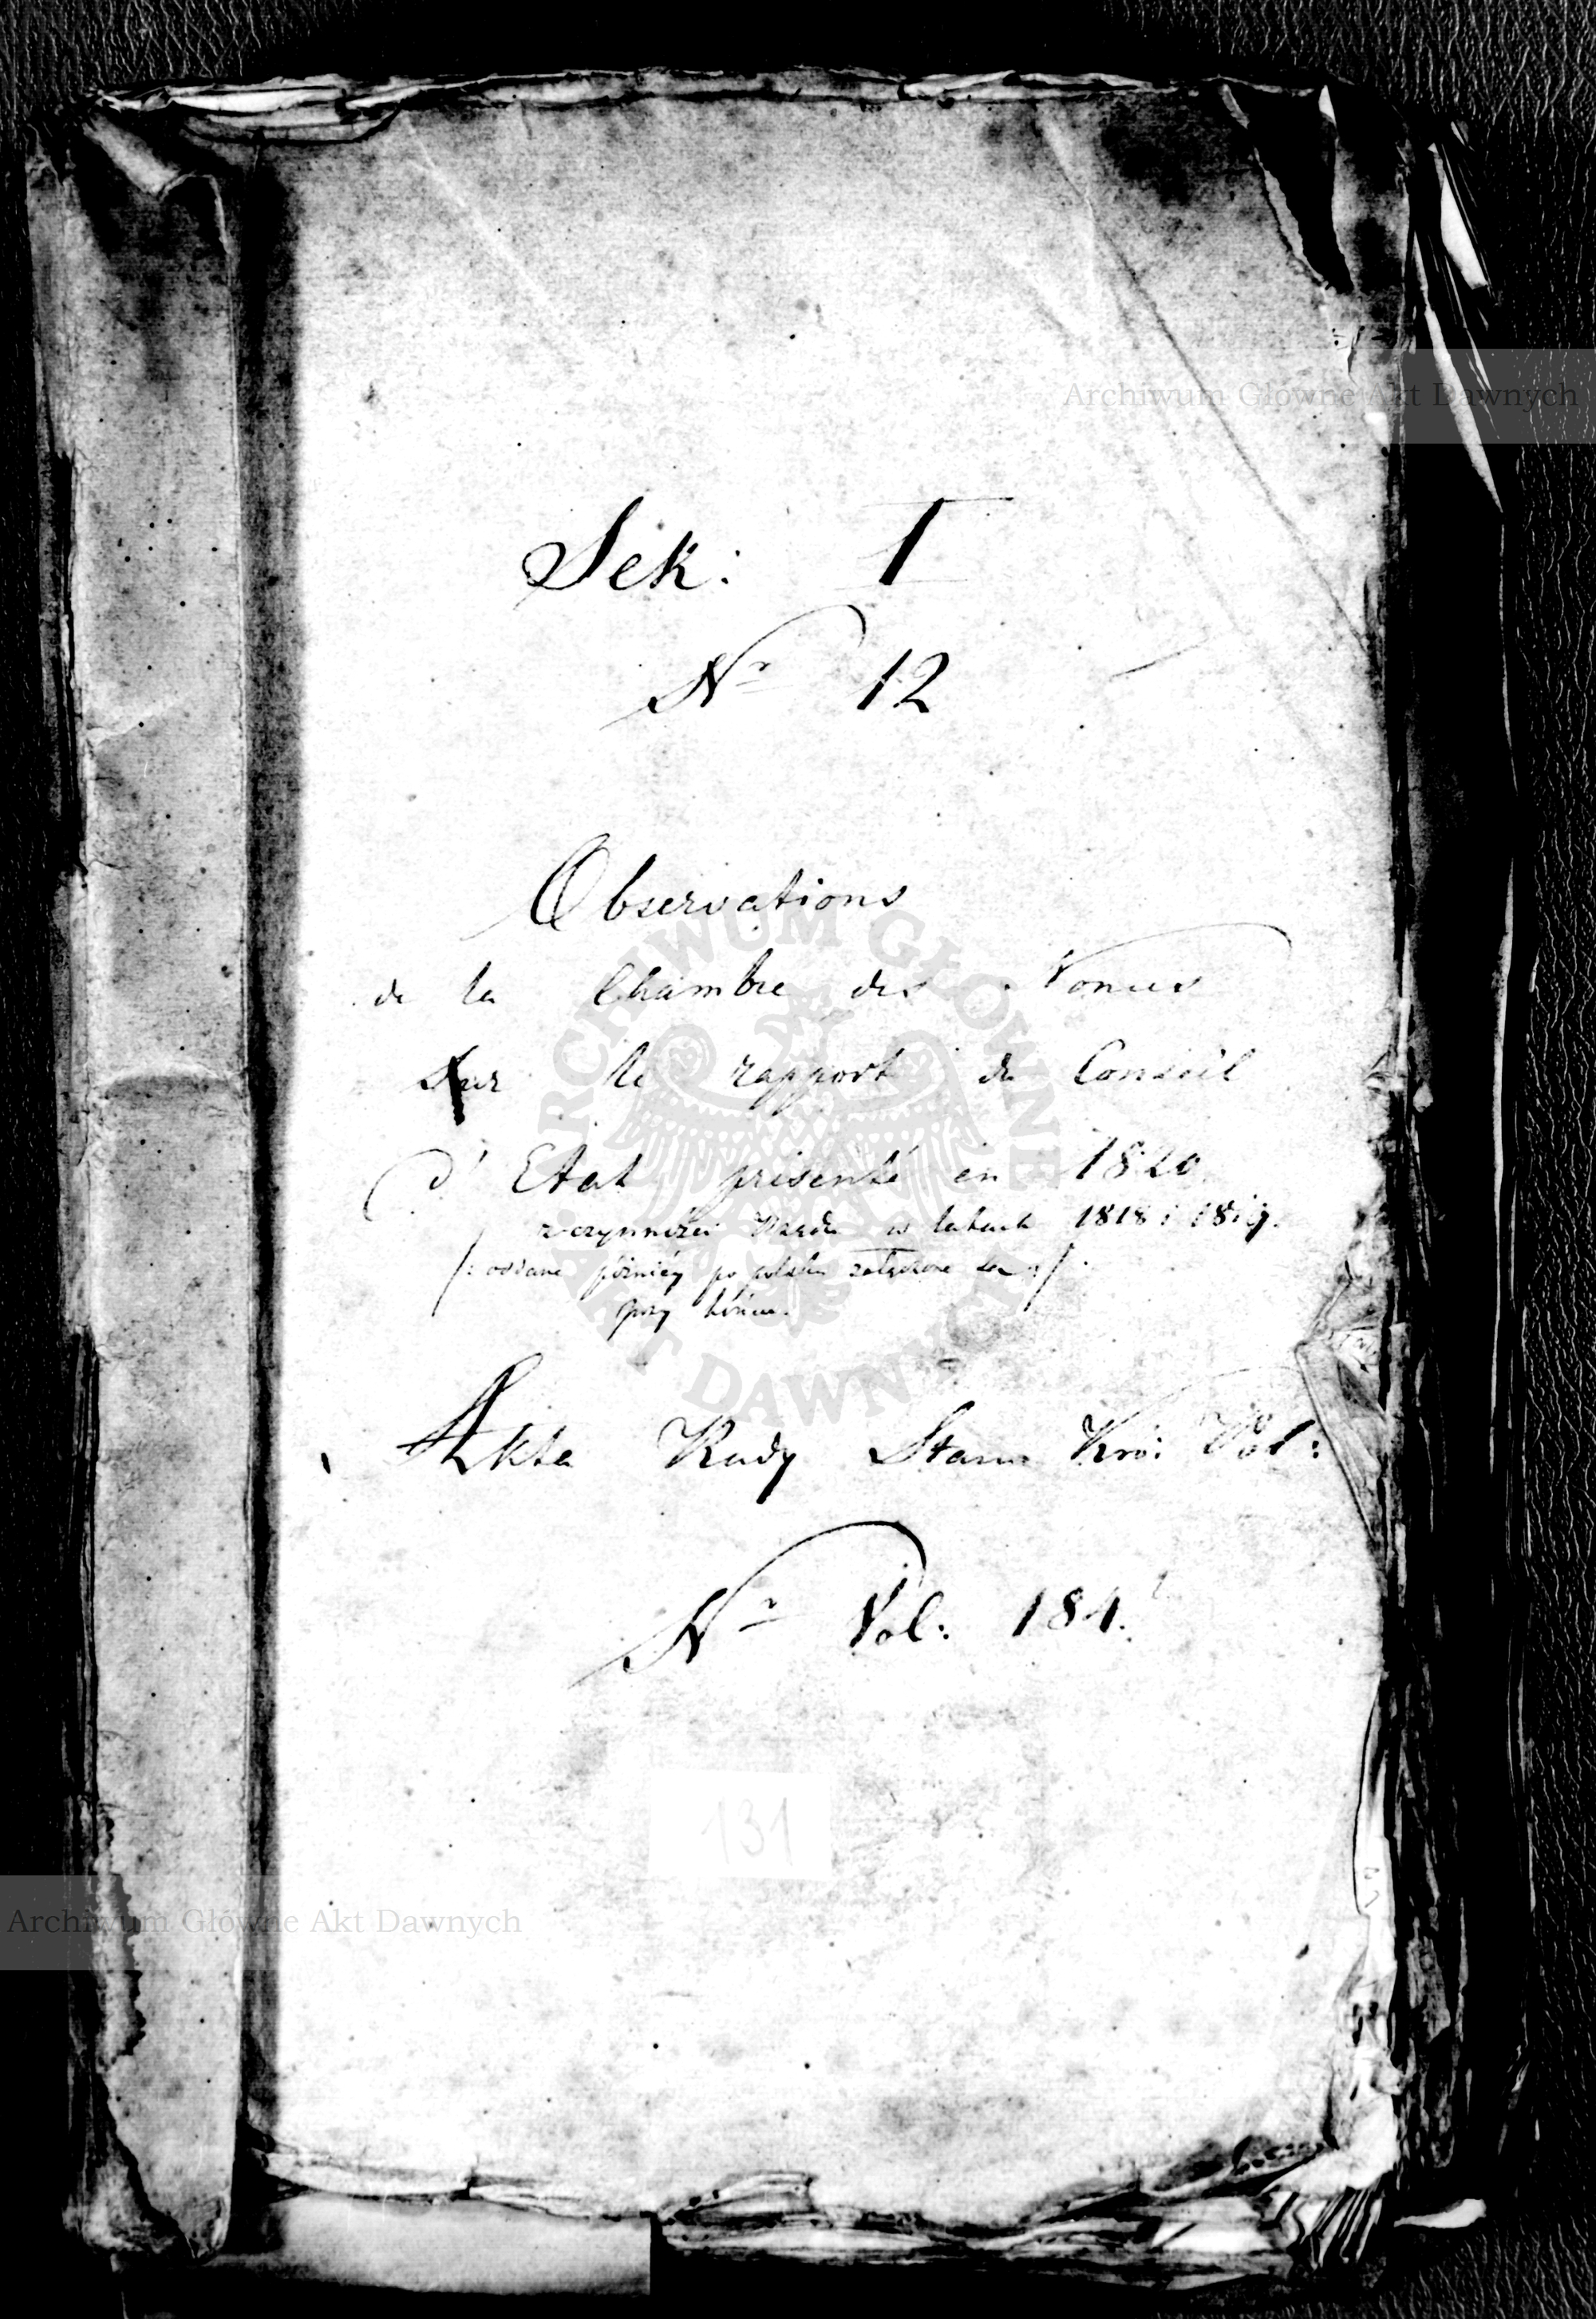 Archiwum Główne Akt Dawnych
Sek: I
Nr 12
Observations
de la Chambre des Nonces
Sur le rapport du Conseil
d'Etat présenté en 1820.
z czynności Rządu w latach 1818 i 1819.
/: oddane później po polsku załączone są :/
przy końcu.
Akta Rady Stanu Kró: Pol:
Nr Vol: 184.
131
Archiwum Główne Akt Dawnych
ARCHIWUM GŁÓWNE AKT DAWNYCH